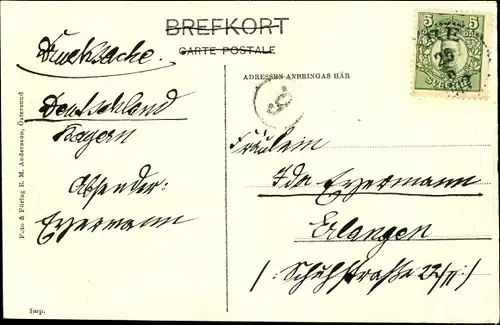 BREFKORT
CARTE POSTALE
Drucksache.
ADRESSEN ANBRINGAS HÄR
5 5
SVERIGE
26
Deutschland
Bayern
Absender:
Eyermann
Foto & Förlag E. M. Andersson, Östersund
Imp.
Fräulein
Ida Eyermann
Erlangen
/: Schuhstraße 22/II :/